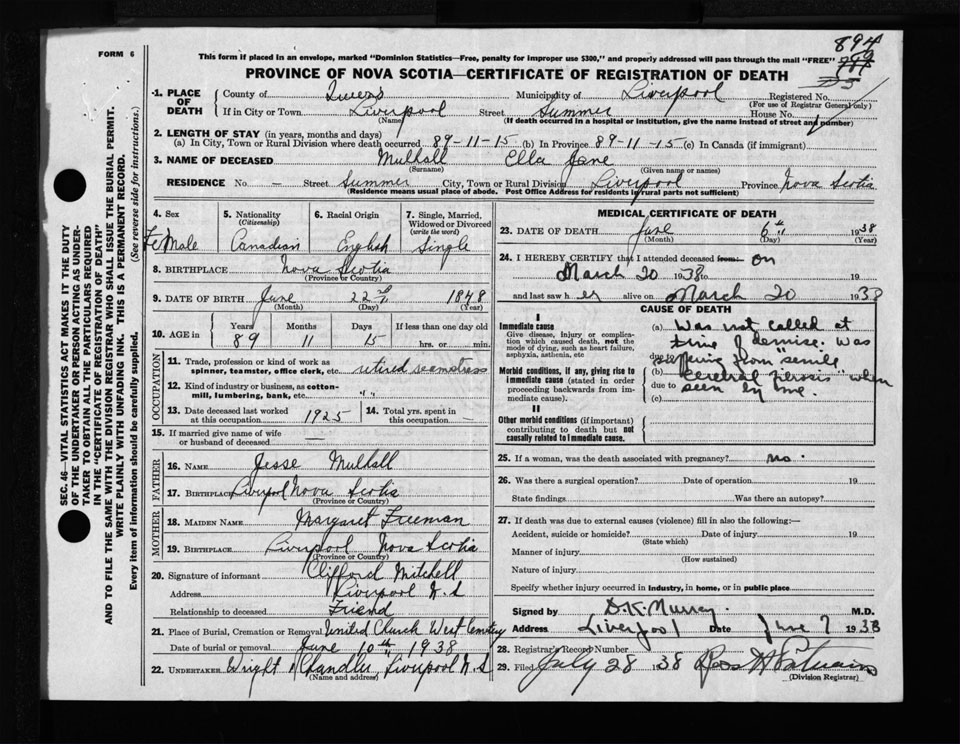 FORM 6
894
This form if placed in an envelope, marked "Dominion Statistics—Free, penalty for improper use $300," and properly addressed will pass through the mail "FREE"
PROVINCE OF NOVA SCOTIA—CERTIFICATE OF REGISTRATION OF DEATH
1. PLACE OF DEATH
County of Queens Municipality of Liverpool Registered No.
(For use of Registrar General only)
If in City or Town Liverpool Street Summer House No.
(Name) (If death occurred in a hospital or institution, give the name instead of street and number)
2. LENGTH OF STAY (in years, months and days)
(a) In City, Town or Rural Division where death occurred 89-11-15 (b) In Province 89-11-15 (c) In Canada (if immigrant)
3. NAME OF DECEASED Mulhall Ella Jane
(Surname) (Given name or names)
RESIDENCE No. — Street Summer City, Town or Rural Division Liverpool Province Nova Scotia
(Residence means usual place of abode. Post Office Address for Residents in rural parts not sufficient)
4. Sex Female
5. Nationality (Citizenship) Canadian
6. Racial Origin English
7. Single, Married, Widowed or Divorced (write the word) Single
8. BIRTHPLACE Nova Scotia
(Province or Country)
9. DATE OF BIRTH June 22nd 1848
(Month) (Day) (Year)
10. AGE in Years 89 Months 11 Days 15 If less than one day old hrs. or min.
OCCUPATION
11. Trade, profession or kind of work as spinner, teamster, office clerk, etc. retired seamstress
12. Kind of industry or business, as cotton-mill, lumbering, bank, etc. " "
13. Date deceased last worked at this occupation 1925 14. Total yrs. spent in this occupation —
15. If married give name of wife or husband of deceased —
FATHER
16. NAME Jesse Mulhall
17. BIRTHPLACE Liverpool Nova Scotia
(Province or Country)
MOTHER
18. MAIDEN NAME Margaret Freeman
19. BIRTHPLACE Liverpool Nova Scotia
(Province or Country)
20. Signature of informant Clifford Mitchell
Address Liverpool N.S
Relationship to deceased Friend
21. Place of Burial, Cremation or Removal United Church West Cemetery
Date of burial or removal June 10th 1938
22. UNDERTAKER Wright & Chandler Liverpool N.S
(Name and address)
MEDICAL CERTIFICATE OF DEATH
23. DATE OF DEATH June 6th 1938
(Month) (Day) (Year)
24. I HEREBY CERTIFY that I attended deceased from: on
March 20 1938 to 19
and last saw her alive on March 20 1938
CAUSE OF DEATH
I
Immediate cause
Give disease, injury or complication which caused death, not the mode of dying, such as heart failure, asphyxia, asthenia, etc
Morbid conditions, if any, giving rise to immediate cause (stated in order proceeding backwards from immediate cause).
II
Other morbid conditions (if important) contributing to death but not causally related to immediate cause.
(a) Was not called at
time of demise. Was
due to suffering from "senile
(b) cerebral fibrosis" when
due to seen by me.
(c)
25. If a woman, was the death associated with pregnancy? no.
26. Was there a surgical operation? Date of operation 19
State findings Was there an autopsy?
27. If death was due to external causes (violence) fill in also the following:—
Accident, suicide or homicide? Date of injury 19
(State which)
Manner of injury
(How sustained)
Nature of injury
Specify whether injury occurred in industry, in home, or in public place
Signed by D.K. Murray. M.D.
Address Liverpool Date June 7 1938
28. Registrar's Record Number
29. Filed July 28 1938
(Division Registrar)
SEC. 46—VITAL STATISTICS ACT MAKES IT THE DUTY
OF THE UNDERTAKER OR PERSON ACTING AS UNDER-
TAKER TO OBTAIN ALL THE PARTICULARS REQUIRED
IN THE "CERTIFICATE OF REGISTRATION OF DEATH"
AND TO FILE THE SAME WITH THE DIVISION REGISTRAR WHO SHALL ISSUE THE BURIAL PERMIT.
WRITE PLAINLY WITH UNFADING INK. THIS IS A PERMANENT RECORD.
Every item of information should be carefully supplied. (See reverse side for instructions.)